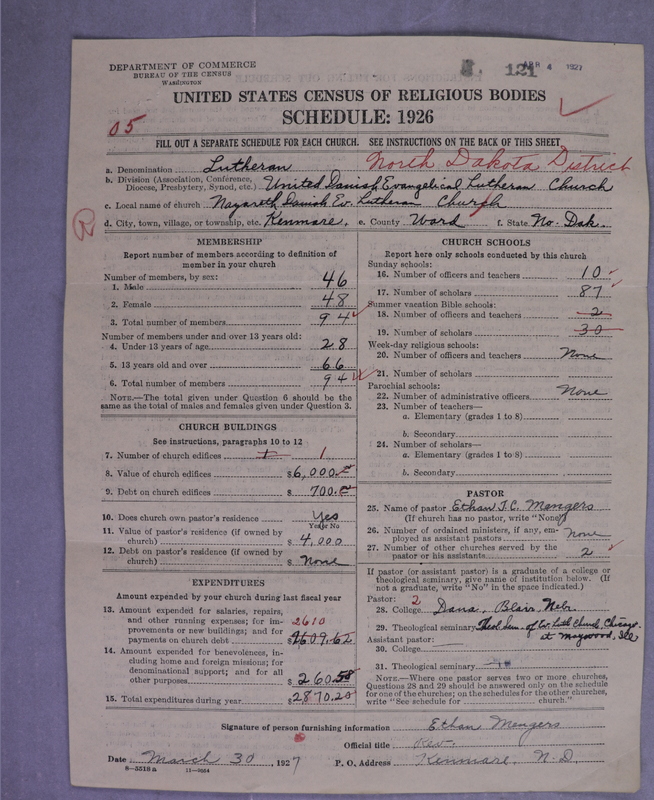 DEPARTMENT OF COMMERCE
BUREAU OF THE CENSUS
WASHINGTON
121 APR 4 1927
UNITED STATES CENSUS OF RELIGIOUS BODIES
SCHEDULE: 1926
05
FILL OUT A SEPARATE SCHEDULE FOR EACH CHURCH. SEE INSTRUCTIONS ON THE BACK OF THIS SHEET
a. Denomination Lutheran North Dakota District
b. Division (Association, Conference, Diocese, Presbytery, Synod, etc.) United Danish Evangelical Lutheran Church
c. Local name of church Nazareth Danish Ev. Lutheran Church
d. City, town, village, or township, etc. Kenmare. e. County Ward f. State No. Dak.
MEMBERSHIP
Report number of members according to definition of
member in your church
Number of members, by sex:
1. Male 46
2. Female 48
3. Total number of members 94
Number of members under and over 13 years old:
4. Under 13 years of age 28
5. 13 years old and over 66
6. Total number of members 94
NOTE.—The total given under Question 6 should be the
same as the total of males and females given under Question 3.
CHURCH BUILDINGS
See instructions, paragraphs 10 to 12
7. Number of church edifices 1
8. Value of church edifices $6,000.
9. Debt on church edifices $ 700.
10. Does church own pastor's residence Yes
Yes or No
11. Value of pastor's residence (if owned by
church) $ 4,000
12. Debt on pastor's residence (if owned by
church) $ None
EXPENDITURES
Amount expended by your church during last fiscal year
13. Amount expended for salaries, repairs,
and other running expenses; for im-
provements or new buildings; and for
payments on church debt 2610 $2609.62
14. Amount expended for benevolences, in-
cluding home and foreign missions; for
denominational support; and for all
other purposes $ 260.58
15. Total expenditures during year $2870.20
CHURCH SCHOOLS
Report here only schools conducted by this church
Sunday schools:
16. Number of officers and teachers 10
17. Number of scholars 87
Summer vacation Bible schools:
18. Number of officers and teachers 2
19. Number of scholars 30
Week-day religious schools:
20. Number of officers and teachers None
21. Number of scholars
Parochial schools:
22. Number of administrative officers None
23. Number of teachers—
a. Elementary (grades 1 to 8)
b. Secondary
24. Number of scholars—
a. Elementary (grades 1 to 8)
b. Secondary
PASTOR
25. Name of pastor Ethan T.C. Mengers
(If church has no pastor, write "None")
26. Number of ordained ministers, if any, em-
ployed as assistant pastors None
27. Number of other churches served by the
pastor or his assistants 2
If pastor (or assistant pastor) is a graduate of a college or
theological seminary, give name of institution below. (If
not a graduate, write "No" in the space indicated.)
Pastor: 2
28. College Dana, Blair, Nebr.
29. Theological seminary Theol. Sem. of Ev. Luth Church, Chicago.
Assistant pastor: at Maywood, Ill
30. College
31. Theological seminary
NOTE.—Where one pastor serves two or more churches,
Questions 28 and 29 should be answered only on the schedule
for one of the churches; on the schedules for the other churches,
write "See schedule for church."
Signature of person furnishing information Ethan Mengers
Official title Rev.
Date March 30, 1927 P. O. Address Kenmare, N. D.
8—5518a 11—9664